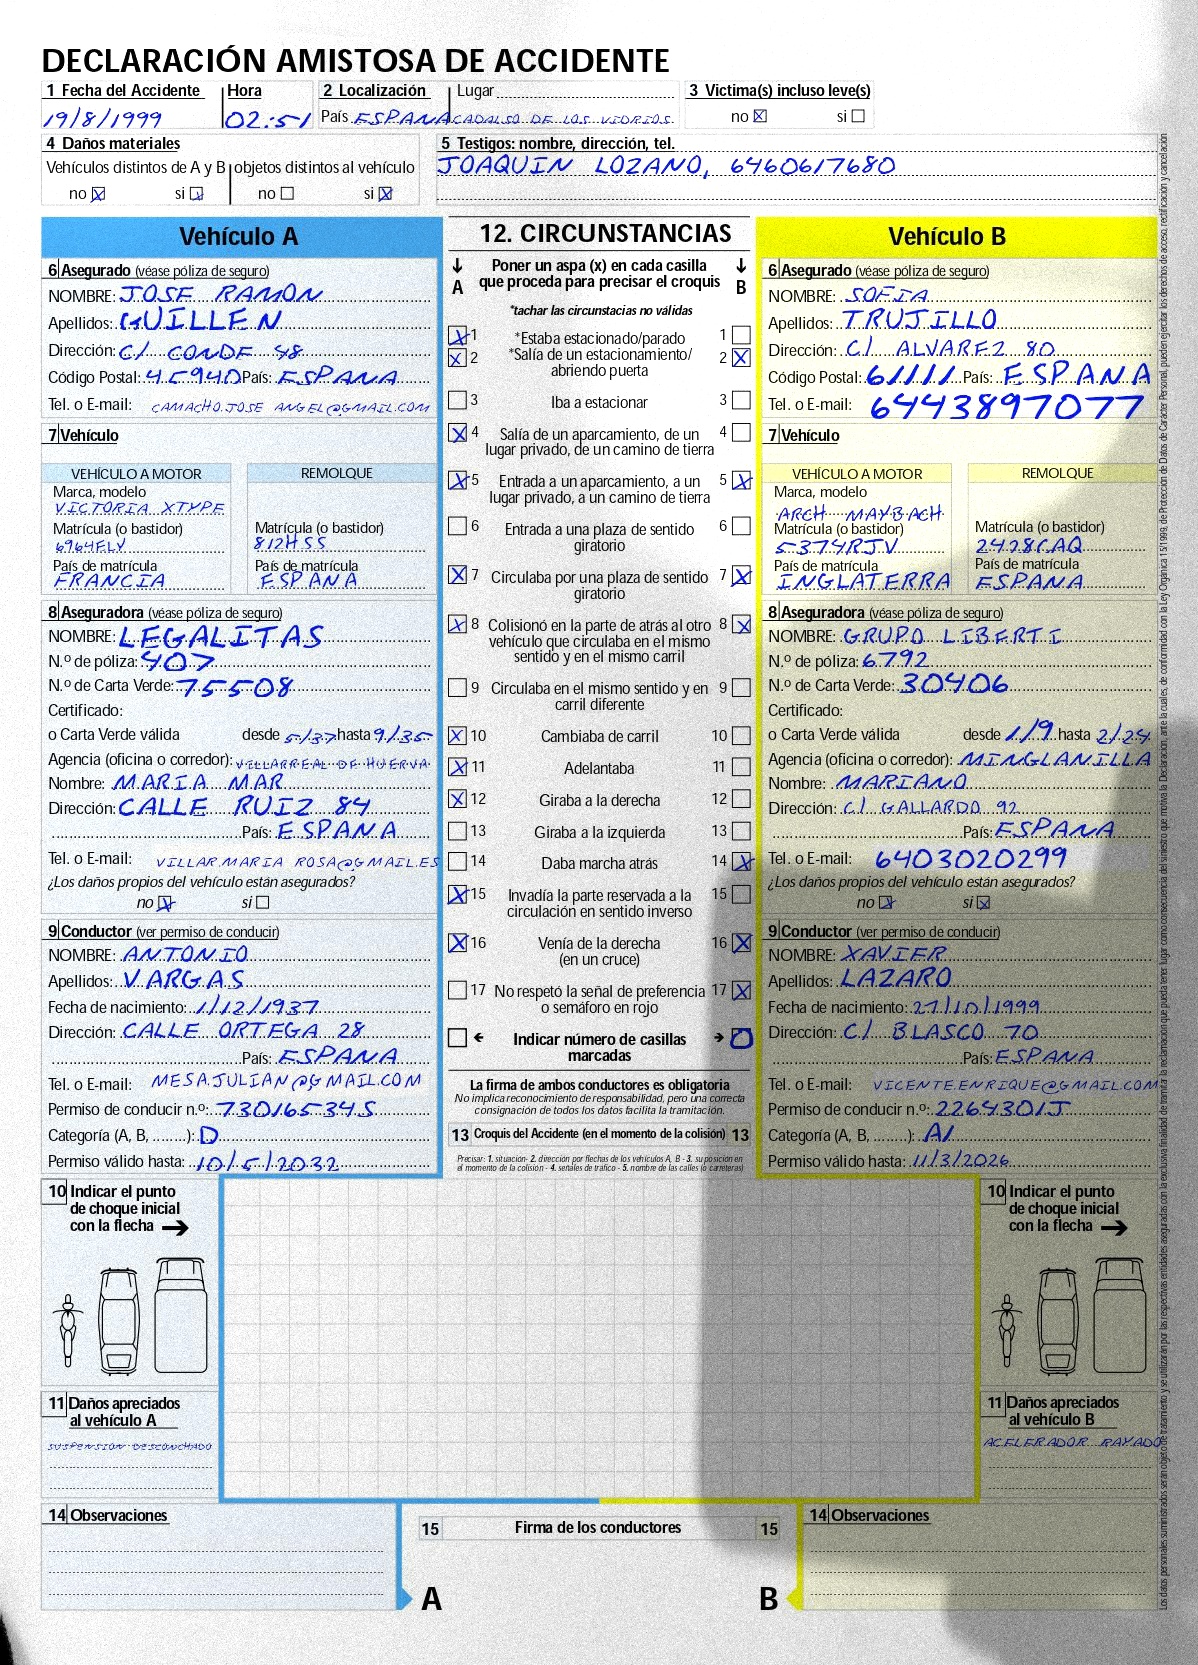 DECLARACIÓN AMISTOSA DE ACCIDENTE
1 Fecha del Accidente Hora 2 Localización Lugar 3 Victima(s) incluso leve(s)
19/8/1999 02:51 País ESPANA CADALSO DE LOS VIDRIOS no ☒ si ☐
4 Daños materiales 5 Testigos: nombre, dirección, tel.
Vehículos distintos de A y B objetos distintos al vehículo JOAQUIN LOZANO, 6460617680
no ☒ si ☒ no ☐ si ☒
Vehículo A
6 Asegurado (véase póliza de seguro)
NOMBRE: JOSE RAMON
Apellidos: GUILLEN
Dirección: C/ CONDE 48
Código Postal: 45940 País: ESPANA
Tel. o E-mail: CAMACHO.JOSE ANGEL@GMAIL.COM
7 Vehículo
VEHÍCULO A MOTOR REMOLQUE
Marca, modelo
VICTORIA XTYPE
Matrícula (o bastidor) Matrícula (o bastidor)
6964FLY 812HSS
País de matrícula País de matrícula
FRANCIA ESPANA
8 Aseguradora (véase póliza de seguro)
NOMBRE: LEGALITAS
N.º de póliza: 407
N.º de Carta Verde: 75508
Certificado:
o Carta Verde válida desde 5/37 hasta 9/35
Agencia (oficina o corredor): VILLARREAL DE HUERVA
Nombre: MARIA MAR
Dirección: CALLE RUIZ 84
País: ESPANA
Tel. o E-mail: VILLAR.MARIA ROSA@GMAIL.ES
¿Los daños propios del vehículo están asegurados?
no ☒ si ☐
9 Conductor (ver permiso de conducir)
NOMBRE: ANTONIO
Apellidos: VARGAS
Fecha de nacimiento: 1/12/1937
Dirección: CALLE ORTEGA 28
País: ESPANA
Tel. o E-mail: MESA.JULIAN@GMAIL.COM
Permiso de conducir n.º: 73016534S
Categoría (A, B, ........): D
Permiso válido hasta: 10/5/2032
10 Indicar el punto
de choque inicial
con la flecha ➔
11 Daños apreciados
al vehículo A
SUSPENSION DESCONCHADO
14 Observaciones
12. CIRCUNSTANCIAS
↓ Poner un aspa (x) en cada casilla ↓
A que proceda para precisar el croquis B
*tachar las circunstacias no válidas
☒ 1 *Estaba estacionado/parado 1 ☐
☒ 2 *Salía de un estacionamiento/ 2 ☒
abriendo puerta
☐ 3 Iba a estacionar 3 ☐
☒ 4 Salía de un aparcamiento, de un 4 ☐
lugar privado, de un camino de tierra
☒ 5 Entrada a un aparcamiento, a un 5 ☒
lugar privado, a un camino de tierra
☐ 6 Entrada a una plaza de sentido 6 ☐
giratorio
☒ 7 Circulaba por una plaza de sentido 7 ☒
giratorio
☒ 8 Colisionó en la parte de atrás al otro 8 ☒
vehículo que circulaba en el mismo
sentido y en el mismo carril
☐ 9 Circulaba en el mismo sentido y en 9 ☐
carril diferente
☒ 10 Cambiaba de carril 10 ☐
☒ 11 Adelantaba 11 ☐
☒ 12 Giraba a la derecha 12 ☐
☐ 13 Giraba a la izquierda 13 ☐
☐ 14 Daba marcha atrás 14 ☒
☒ 15 Invadía la parte reservada a la 15 ☐
circulación en sentido inverso
☒ 16 Venía de la derecha 16 ☒
(en un cruce)
☐ 17 No respetó la señal de preferencia 17 ☒
o semáforo en rojo
☐ ← Indicar número de casillas → 0
marcadas
La firma de ambos conductores es obligatoria
No implica reconocimiento de responsabilidad, pero una correcta
consignación de todos los datos facilita la tramitación.
13 Croquis del Accidente (en el momento de la colisión) 13
Precisar: 1. situación- 2. dirección por flechas de los vehículos A, B - 3. su posición en
el momento de la colisión - 4. señales de tráfico - 5. nombre de las calles (o carreteras)
15 Firma de los conductores 15
A B
Vehículo B
6 Asegurado (véase póliza de seguro)
NOMBRE: SOFIA
Apellidos: TRUJILLO
Dirección: C/ ALVAREZ 80
Código Postal: 61111 País: ESPANA
Tel. o E-mail: 6443897077
7 Vehículo
VEHÍCULO A MOTOR REMOLQUE
Marca, modelo
ARCH MAYBACH
Matrícula (o bastidor) Matrícula (o bastidor)
5374RJV 2428CAQ
País de matrícula País de matrícula
INGLATERRA ESPANA
8 Aseguradora (véase póliza de seguro)
NOMBRE: GRUPO LIBERTI
N.º de póliza: 6792
N.º de Carta Verde: 30406
Certificado:
o Carta Verde válida desde 1/9 hasta 2/24
Agencia (oficina o corredor): MINGLANILLA
Nombre: MARIANO
Dirección: C/ GALLARDO 92
País: ESPANA
Tel. o E-mail: 6403020299
¿Los daños propios del vehículo están asegurados?
no ☒ si ☒
9 Conductor (ver permiso de conducir)
NOMBRE: XAVIER
Apellidos: LAZARO
Fecha de nacimiento: 27/10/1999
Dirección: C/ BLASCO 70
País: ESPANA
Tel. o E-mail: VICENTE.ENRIQUE@GMAIL.COM
Permiso de conducir n.º: 2264301J
Categoría (A, B, ........): A1
Permiso válido hasta: 11/3/2026
10 Indicar el punto
de choque inicial
con la flecha ➔
11 Daños apreciados
al vehículo B
ACELERADOR RAYADO
14 Observaciones